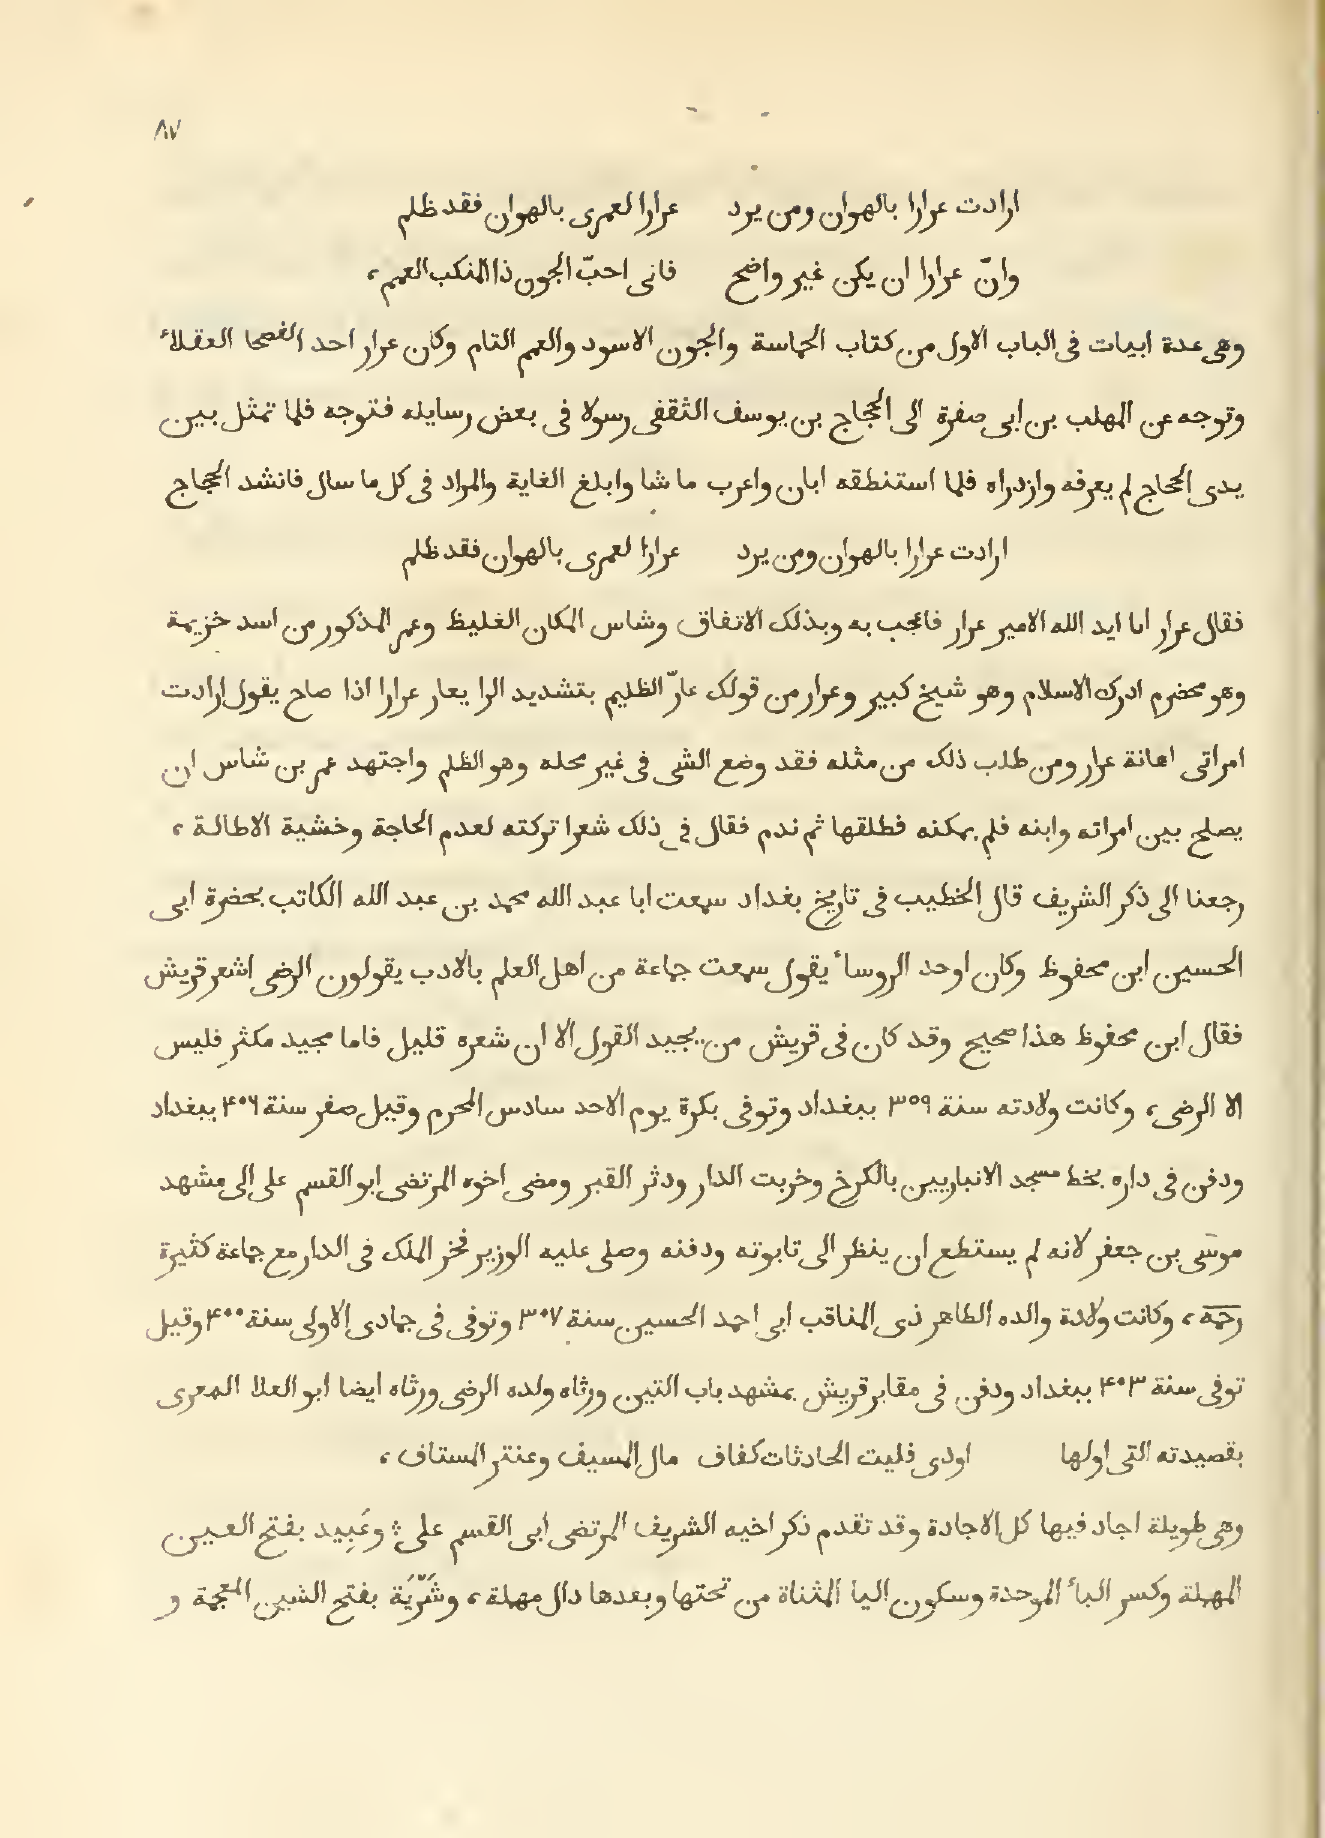 ٨٧
ارادت عرارا بالهوان ومن يرد عرارا لعمرى بالهوان فقد ظلم
وانّ عرارا ان يكن غير واضح فانى احبّ الجون ذا المنكب العمم ،
وهى عدة ابيات فى الباب الاول من كتاب الحماسة والجون الاسود والعمم التام وكان عرار احد الفصحا العقلاء
وتوجه عن المهلب بن ابى صفرة الى الحجاج بن يوسف الثقفى رسولا فى بعض رسايله فتوجه فلما تمثل بين
يدى الحجاج لم يعرفه وازدراه فلما استنطقه ابان واعرب ما شا وابلغ الغاية والمراد فى كل ما سال فانشد الحجاج
ارادت عرارا بالهوان ومن يرد عرارا لعمرى بالهوان فقد ظلم
فقال عرار انا ايد الله الامير عرار فاعجب به وبذلك الاتفاق وشاس المكان الغليظ وعمر المذكور من اسد خزيمة
وهو مخضرم ادرك الاسلام وهو شيخ كبير وعرار من قولك عارّ الظليم بتشديد الرا يعار عرارا اذا صاح يقول ارادت
امراتى اهانة عرار ومن طلب ذلك من مثله فقد وضع الشى فى غير محله وهو الظلم واجتهد عمر بن شاس ان
يصلح بين امراته وابنه فلم يمكنه فطلقها ثم ندم فقال فى ذلك شعرا تركته لعدم الحاجة وخشية الاطالة ،
رجعنا الى ذكر الشريف قال الخطيب فى تاريخ بغداد سمعت ابا عبد الله محمد بن عبد الله الكاتب بحضرة ابى
الحسين ابن محفوظ وكان اوحد الروساء يقول سمعت جماعة من اهل العلم بالادب يقولون الرضى اشعر قريش
فقال ابن محفوظ هذا صحيح وقد كان فى قريش من يجيد القول الا ان شعره قليل فاما مجيد مكثر فليس
الا الرضى ، وكانت ولادته سنة ٣٥٩ ببغداد وتوفى بكرة يوم الاحد سادس المحرم وقيل صفر سنة ٤٠٦ ببغداد
ودفن فى داره بخط مسجد الانباريين بالكرخ وخربت الدار ودثر القبر ومضى اخوه المرتضى ابو القسم على الى مشهد
موسى بن جعفر لانه لم يستطع ان ينظر الى تابوته ودفنه وصلى عليه الوزير فخر الملك فى الدار مع جماعة كثيرة
رحمه ، وكانت ولادة والده الطاهر ذى المناقب ابى احمد الحسين سنة ٣٠٧ وتوفى فى جمادى الاولى سنة ٤٠٠ وقيل
توفى سنة ٤٠٣ ببغداد ودفن فى مقابر قريش بمشهد باب التين ورثاه ولده الرضى ورثاه ايضا ابو العلا المعرى
بقصيدته التى اولها اودى فليت الحادثات كفاف مال المسيف وعنتر المستاف ،
وهى طويلة اجاد فيها كل الاجادة وقد تقدم ذكر اخيه الشريف المرتضى ابى القسم على ؛ وعَبِيد بفتح العين
المهملة وكسر الباء الموحدة وسكون اليا المثناة من تحتها وبعدها دال مهملة ، وشَرْيَة بفتح الشين المعجمة و